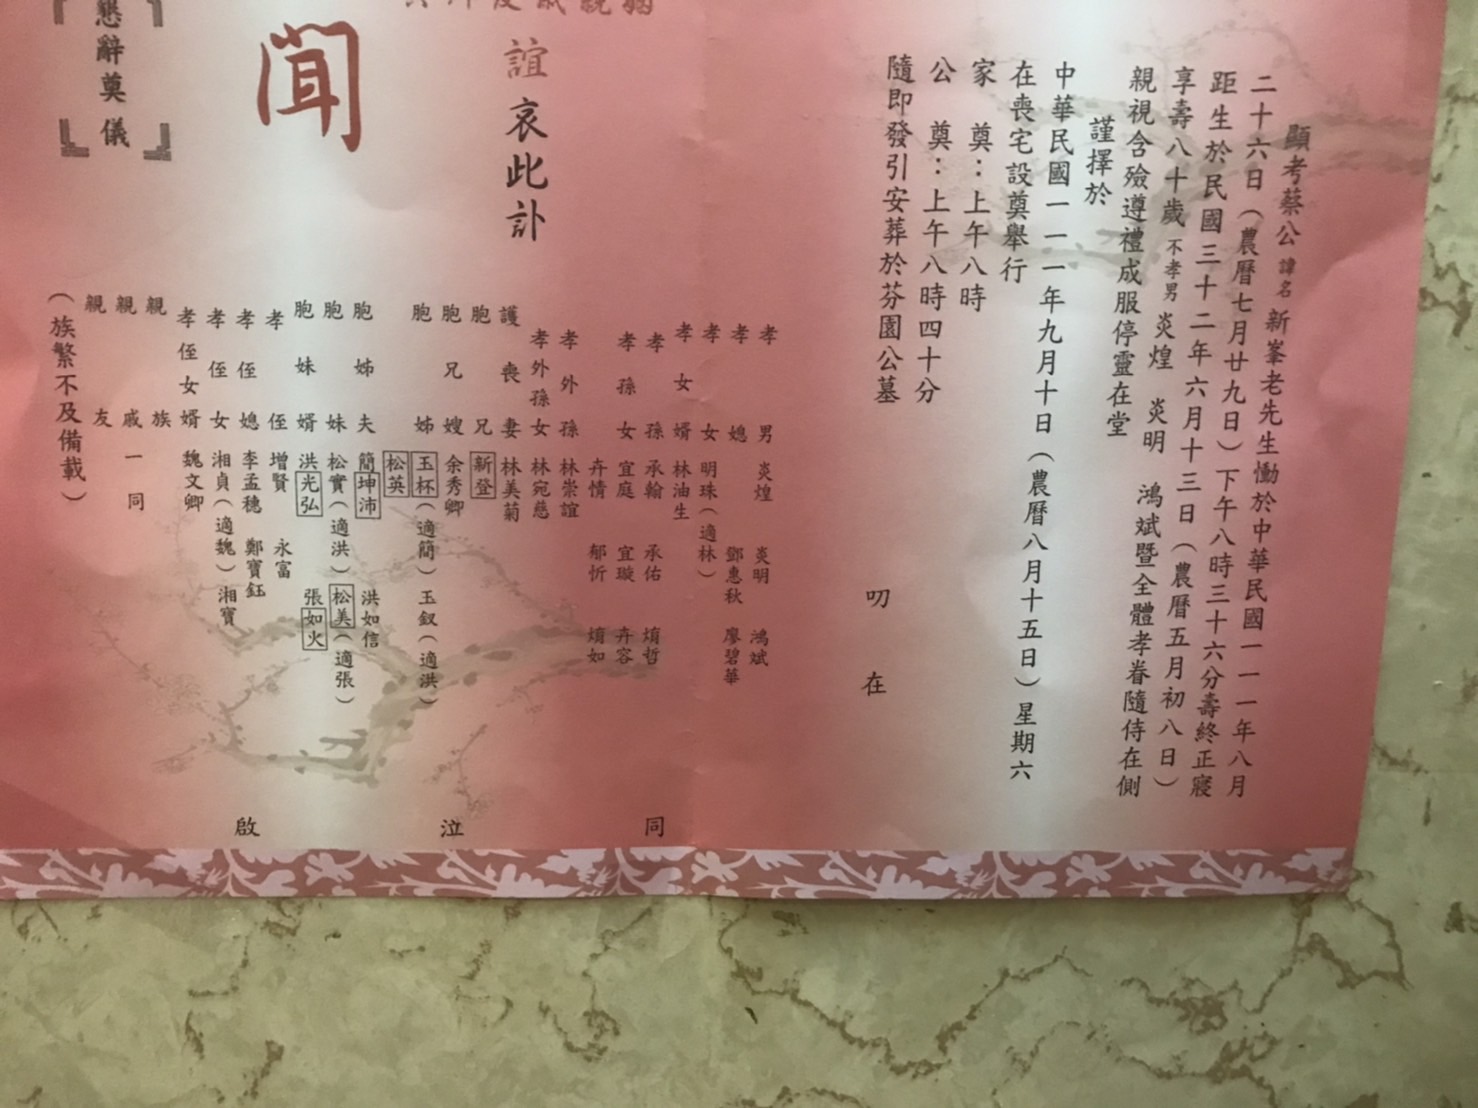 顯考蔡公諱名新峯老先生慟於中華民國一一一年八月
二十六日(農曆七月廿九日)下午八時三十六分壽終正寢
距生於民國三十二年六月十三日(農曆五月初八日)
享壽八十歲不孝男炎煌 炎明 鴻斌暨全體孝眷隨侍在側
親視含殮遵禮成服停靈在堂
謹擇於
中華民國一一一年九月十日(農曆八月十五日)星期六
在喪宅設奠舉行
家 奠:上午八時
公 奠:上午八時四十分
隨即發引安葬於芬園公墓
叨 在
誼 哀此訃
聞
懇辭奠儀
孝男 炎煌 炎明 鴻斌
孝媳 鄧惠秋 廖碧華
孝女 明珠(適林)
孝女婿 林油生
孝孫 承翰 承佑 焴哲
孝孫女 宜庭 宜璇 卉容
卉情 郁忻 焴如
孝外孫 林崇誼
孝外孫女 林宛慈
護喪妻 林美菊
胞兄 新登
胞兄嫂 余秀卿
胞姊 玉杯(適簡) 玉釵(適洪)
松英
胞姊夫 簡坤沛 洪如信
胞妹 松實(適洪) 松美(適張)
胞妹婿 洪光弘 張如火
孝侄 增賢 永富
孝侄媳 李孟穗 鄭寶鈺
孝侄女 湘貞(適魏) 湘寶
孝侄女婿 魏文卿
親族
親戚一同
親友
(族繁不及備載)
同 泣 啟